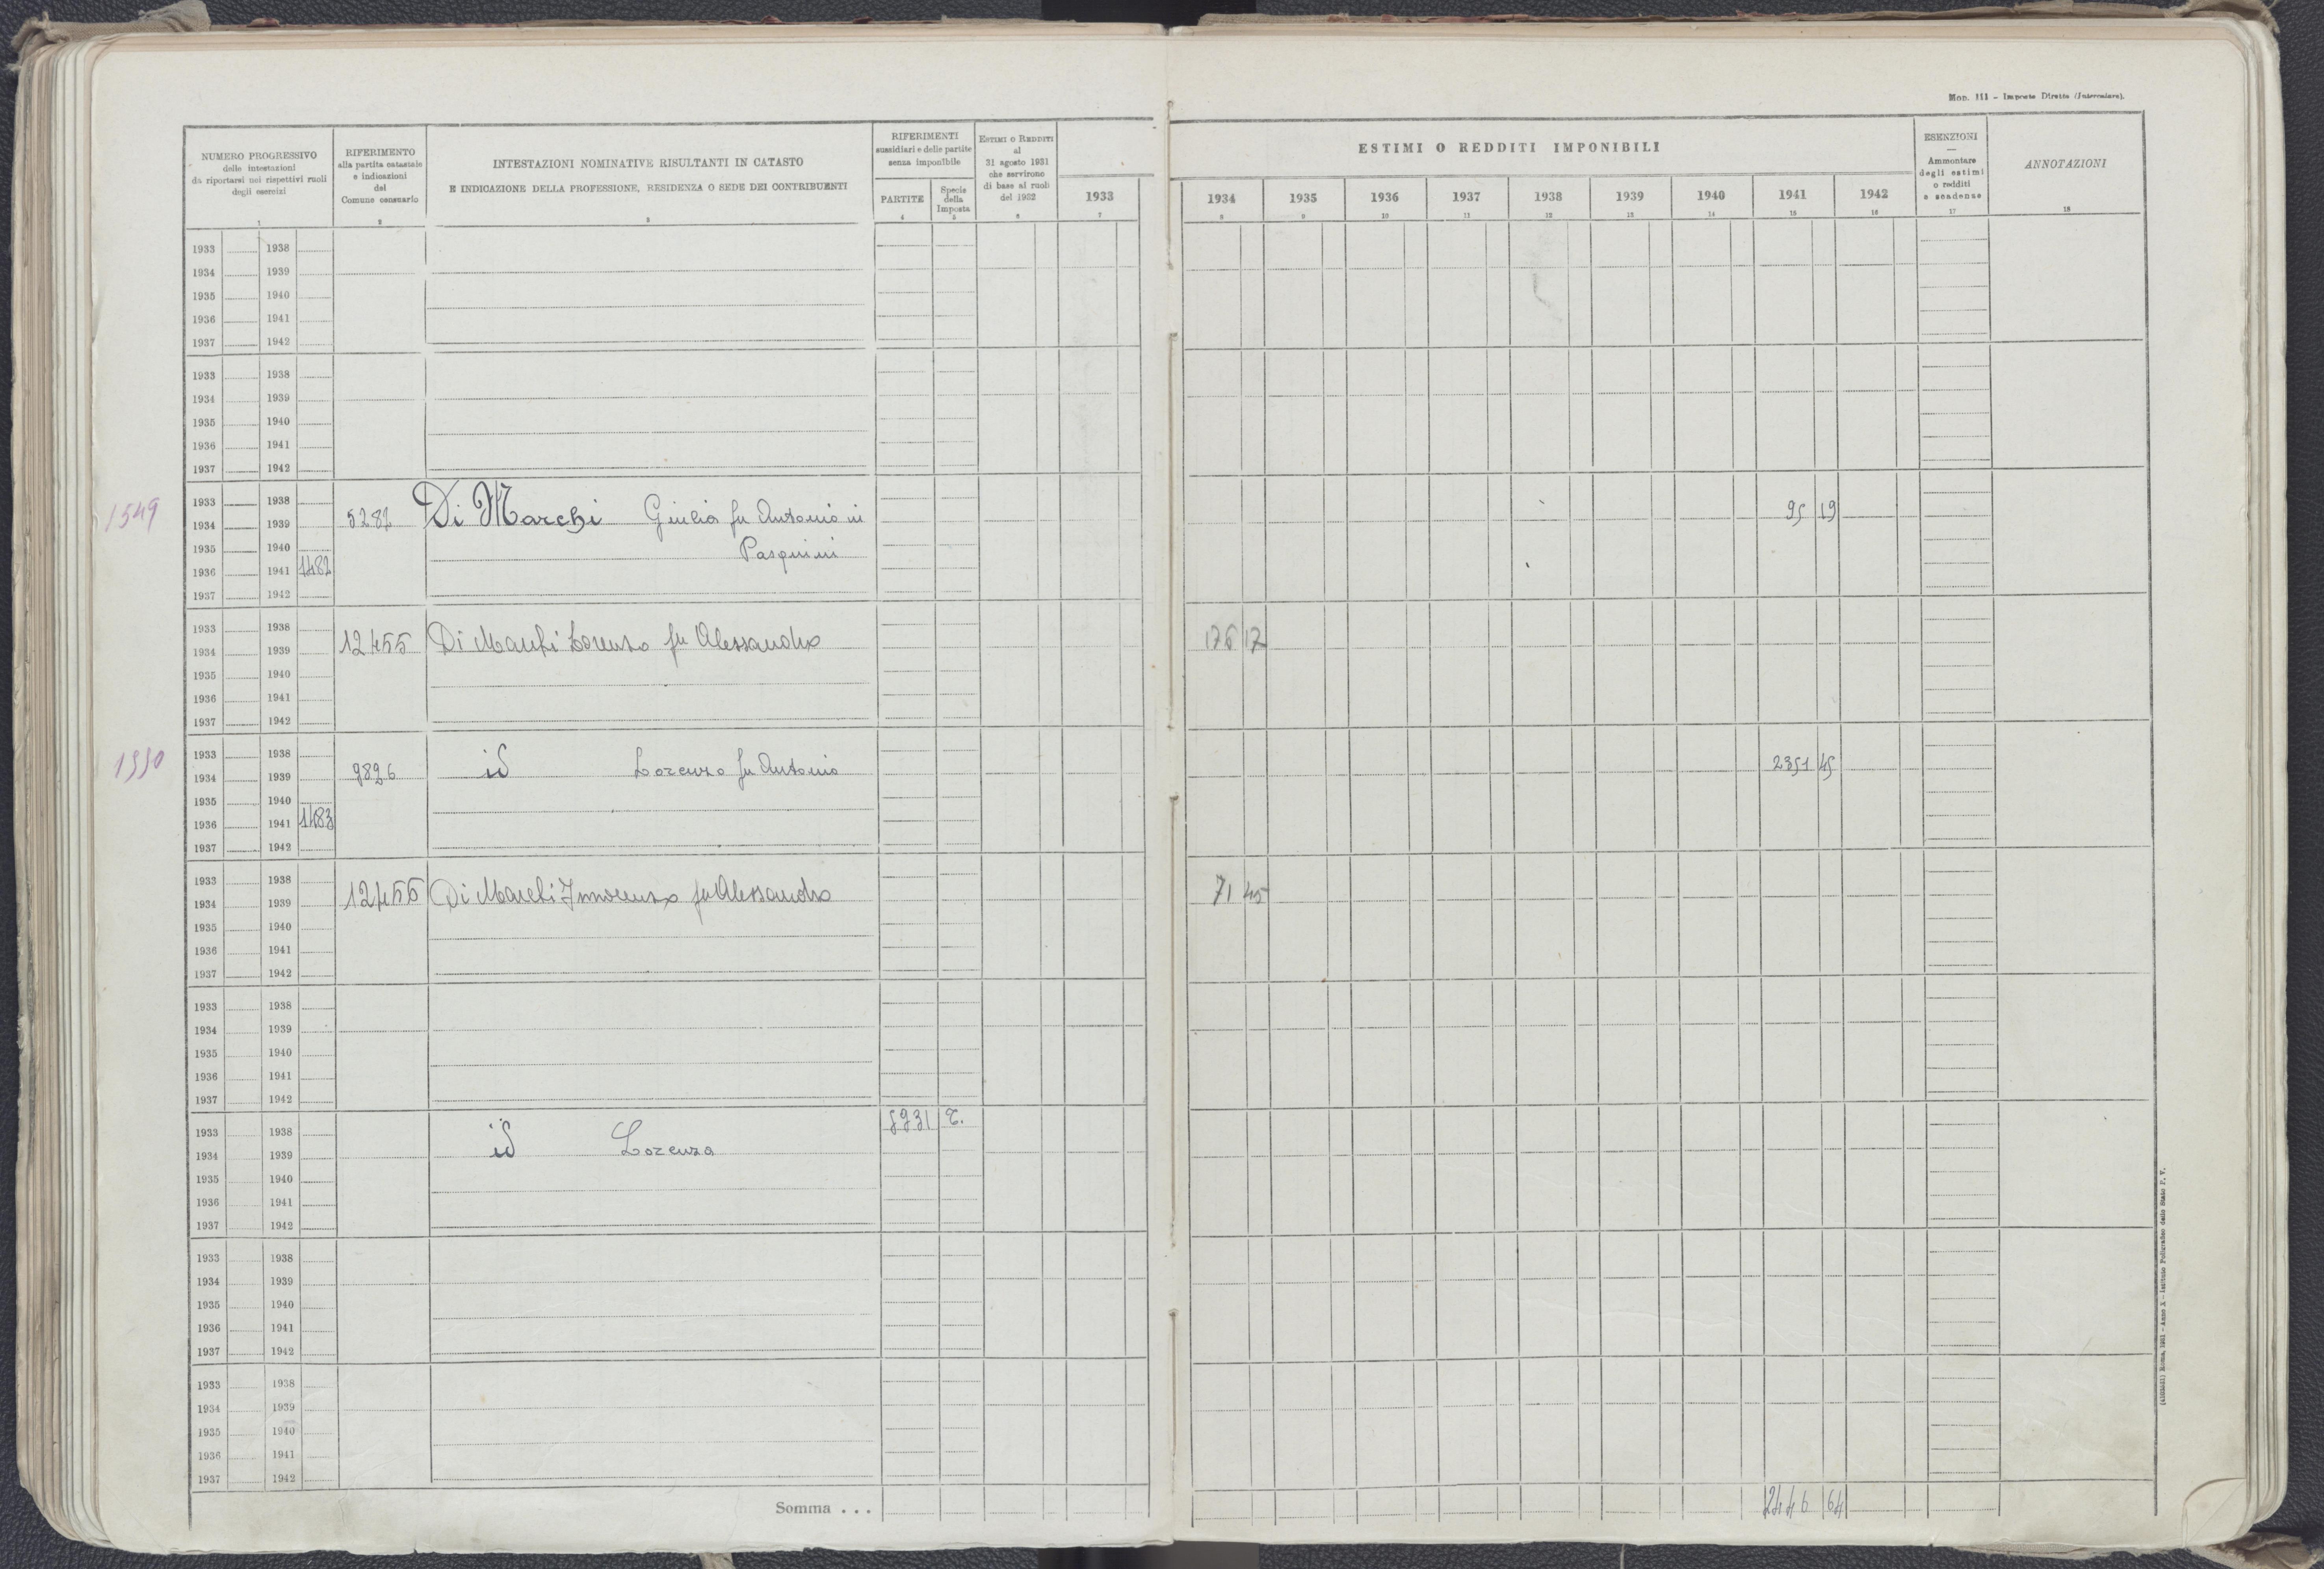 Mod. 111 - Imposte Dirette (Intercalare).
NUMERO PROGRESSIVO
delle intestazioni
da riportarsi nei rispettivi ruoli
degli esercizi
1
RIFERIMENTO
alla partita catastale
e indicazioni
del
Comune censuario
2
INTESTAZIONI NOMINATIVE RISULTANTI IN CATASTO
E INDICAZIONE DELLA PROFESSIONE, RESIDENZA O SEDE DEI CONTRIBUENTI
3
RIFERIMENTI
sussidiari e delle partite
senza imponibile
PARTITE
4
Specie
della
Imposta
5
ESTIMI O REDDITI
al
31 agosto 1931
che servirono
di base ai ruoli
del 1932
6
1933
7
ESTIMI O REDDITI IMPONIBILI
1934 1935 1936 1937 1938 1939 1940 1941 1942
8 9 10 11 12 13 14 15 16
ESENZIONI
—
Ammontare
degli estimi
o redditi
e scadenze
17
ANNOTAZIONI
18
1933 1938
1934 1939
1935 1940
1936 1941
1937 1942
1933 1938
1934 1939
1935 1940
1936 1941
1937 1942
1549
1933 1938
1934 1939 5282 Di Marchi Giulia fu Antonio in 95 19
1935 1940 Pasquini
1936 1941 1482
1937 1942
1933 1938
1934 1939 12455 Di Marchi Lorenzo fu Alessandro 176 17
1935 1940
1936 1941
1937 1942
1550
1933 1938
1934 1939 9826 id Lorenzo fu Antonio 2351 45
1935 1940
1936 1941 1483
1937 1942
1933 1938
1934 1939 12456 Di Marchi Innocenzo fu Alessandro 71 45
1935 1940
1936 1941
1937 1942
1933 1938
1934 1939
1935 1940
1936 1941
1937 1942
1933 1938 T.
1934 1939 id Lorenzo
1935 1940
1936 1941
1937 1942
1933 1938
1934 1939
1935 1940
1936 1941
1937 1942
1933 1938
1934 1939
1935 1940
1936 1941
1937 1942
Somma . . . 2446 64